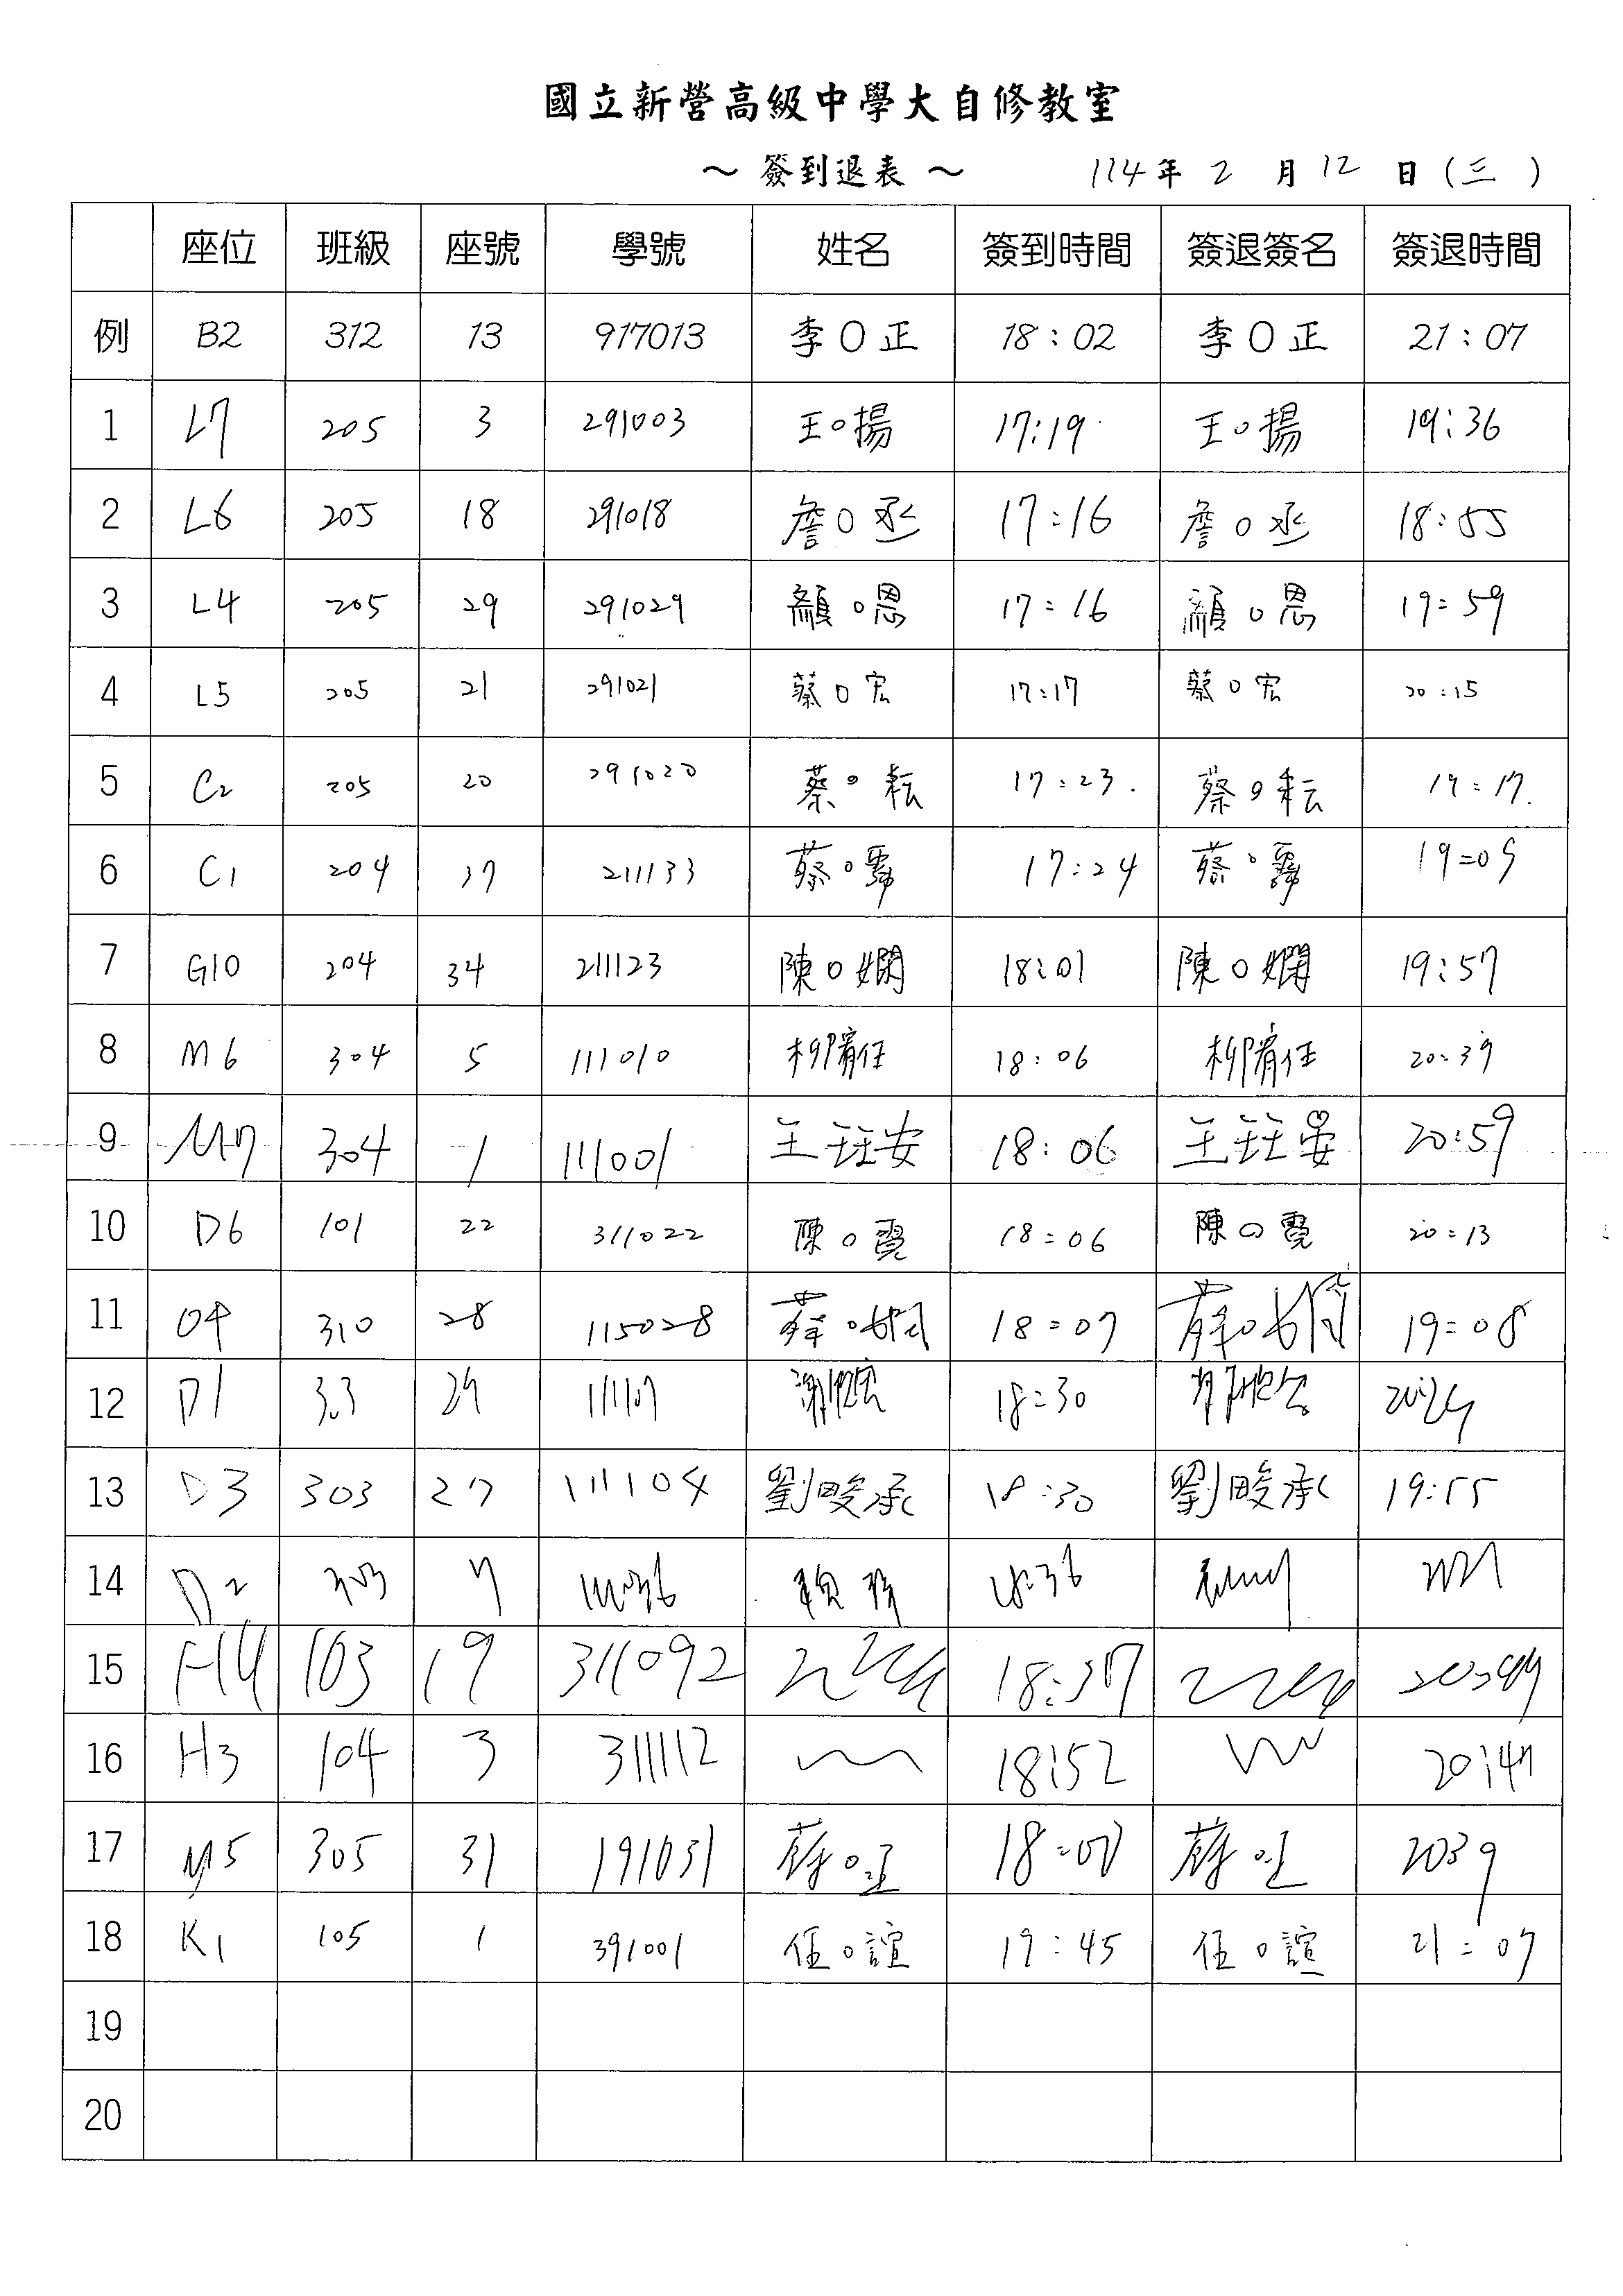 國立新營高級中學大自修教室
～ 簽到退表 ～ 114年 2 月 12 日 (三)
座位 班級 座號 學號 姓名 簽到時間 簽退簽名 簽退時間
例 B2 312 13 917013 李O正 18:02 李O正 21:07
1 L7 205 3 291003 王O揚 17:19 王O揚 19:36
2 L6 205 18 291018 詹O丞 17:16 詹O丞 18:55
3 L4 205 29 291029 顏O恩 17:16 顏O恩 19:59
4 L5 205 21 291021 蔡O宏 17:17 蔡O宏 20:15
5 C2 205 20 291020 蔡O耘 17:23. 蔡O耘 19:17.
6 C1 204 37 211133 蔡O 17:24 蔡O 19:09
7 G10 204 34 211123 陳O嫻 18:01 陳O嫻 19:57
8 M6 304 5 111010 18:06 20:39
9 M7 304 1 111001 王 安 18:06 王 20:59
10 D6 101 22 311022 陳O霓 18:06 陳O霓 20:13
11 310 28 115028 18:07 19:08
12 D1 29 18:30
13 D3 303 27 111104 劉畯承 18:30 劉畯承 19:55
14 D2 303 18:36
15 H4 103 19 311092 18:37
16 H3 104 3 311112 18:52 20:47
17 M5 305 31 191031 2039
18 K1 105 1 391001 伍O諠 19:45 伍O諠 21:07
19
20